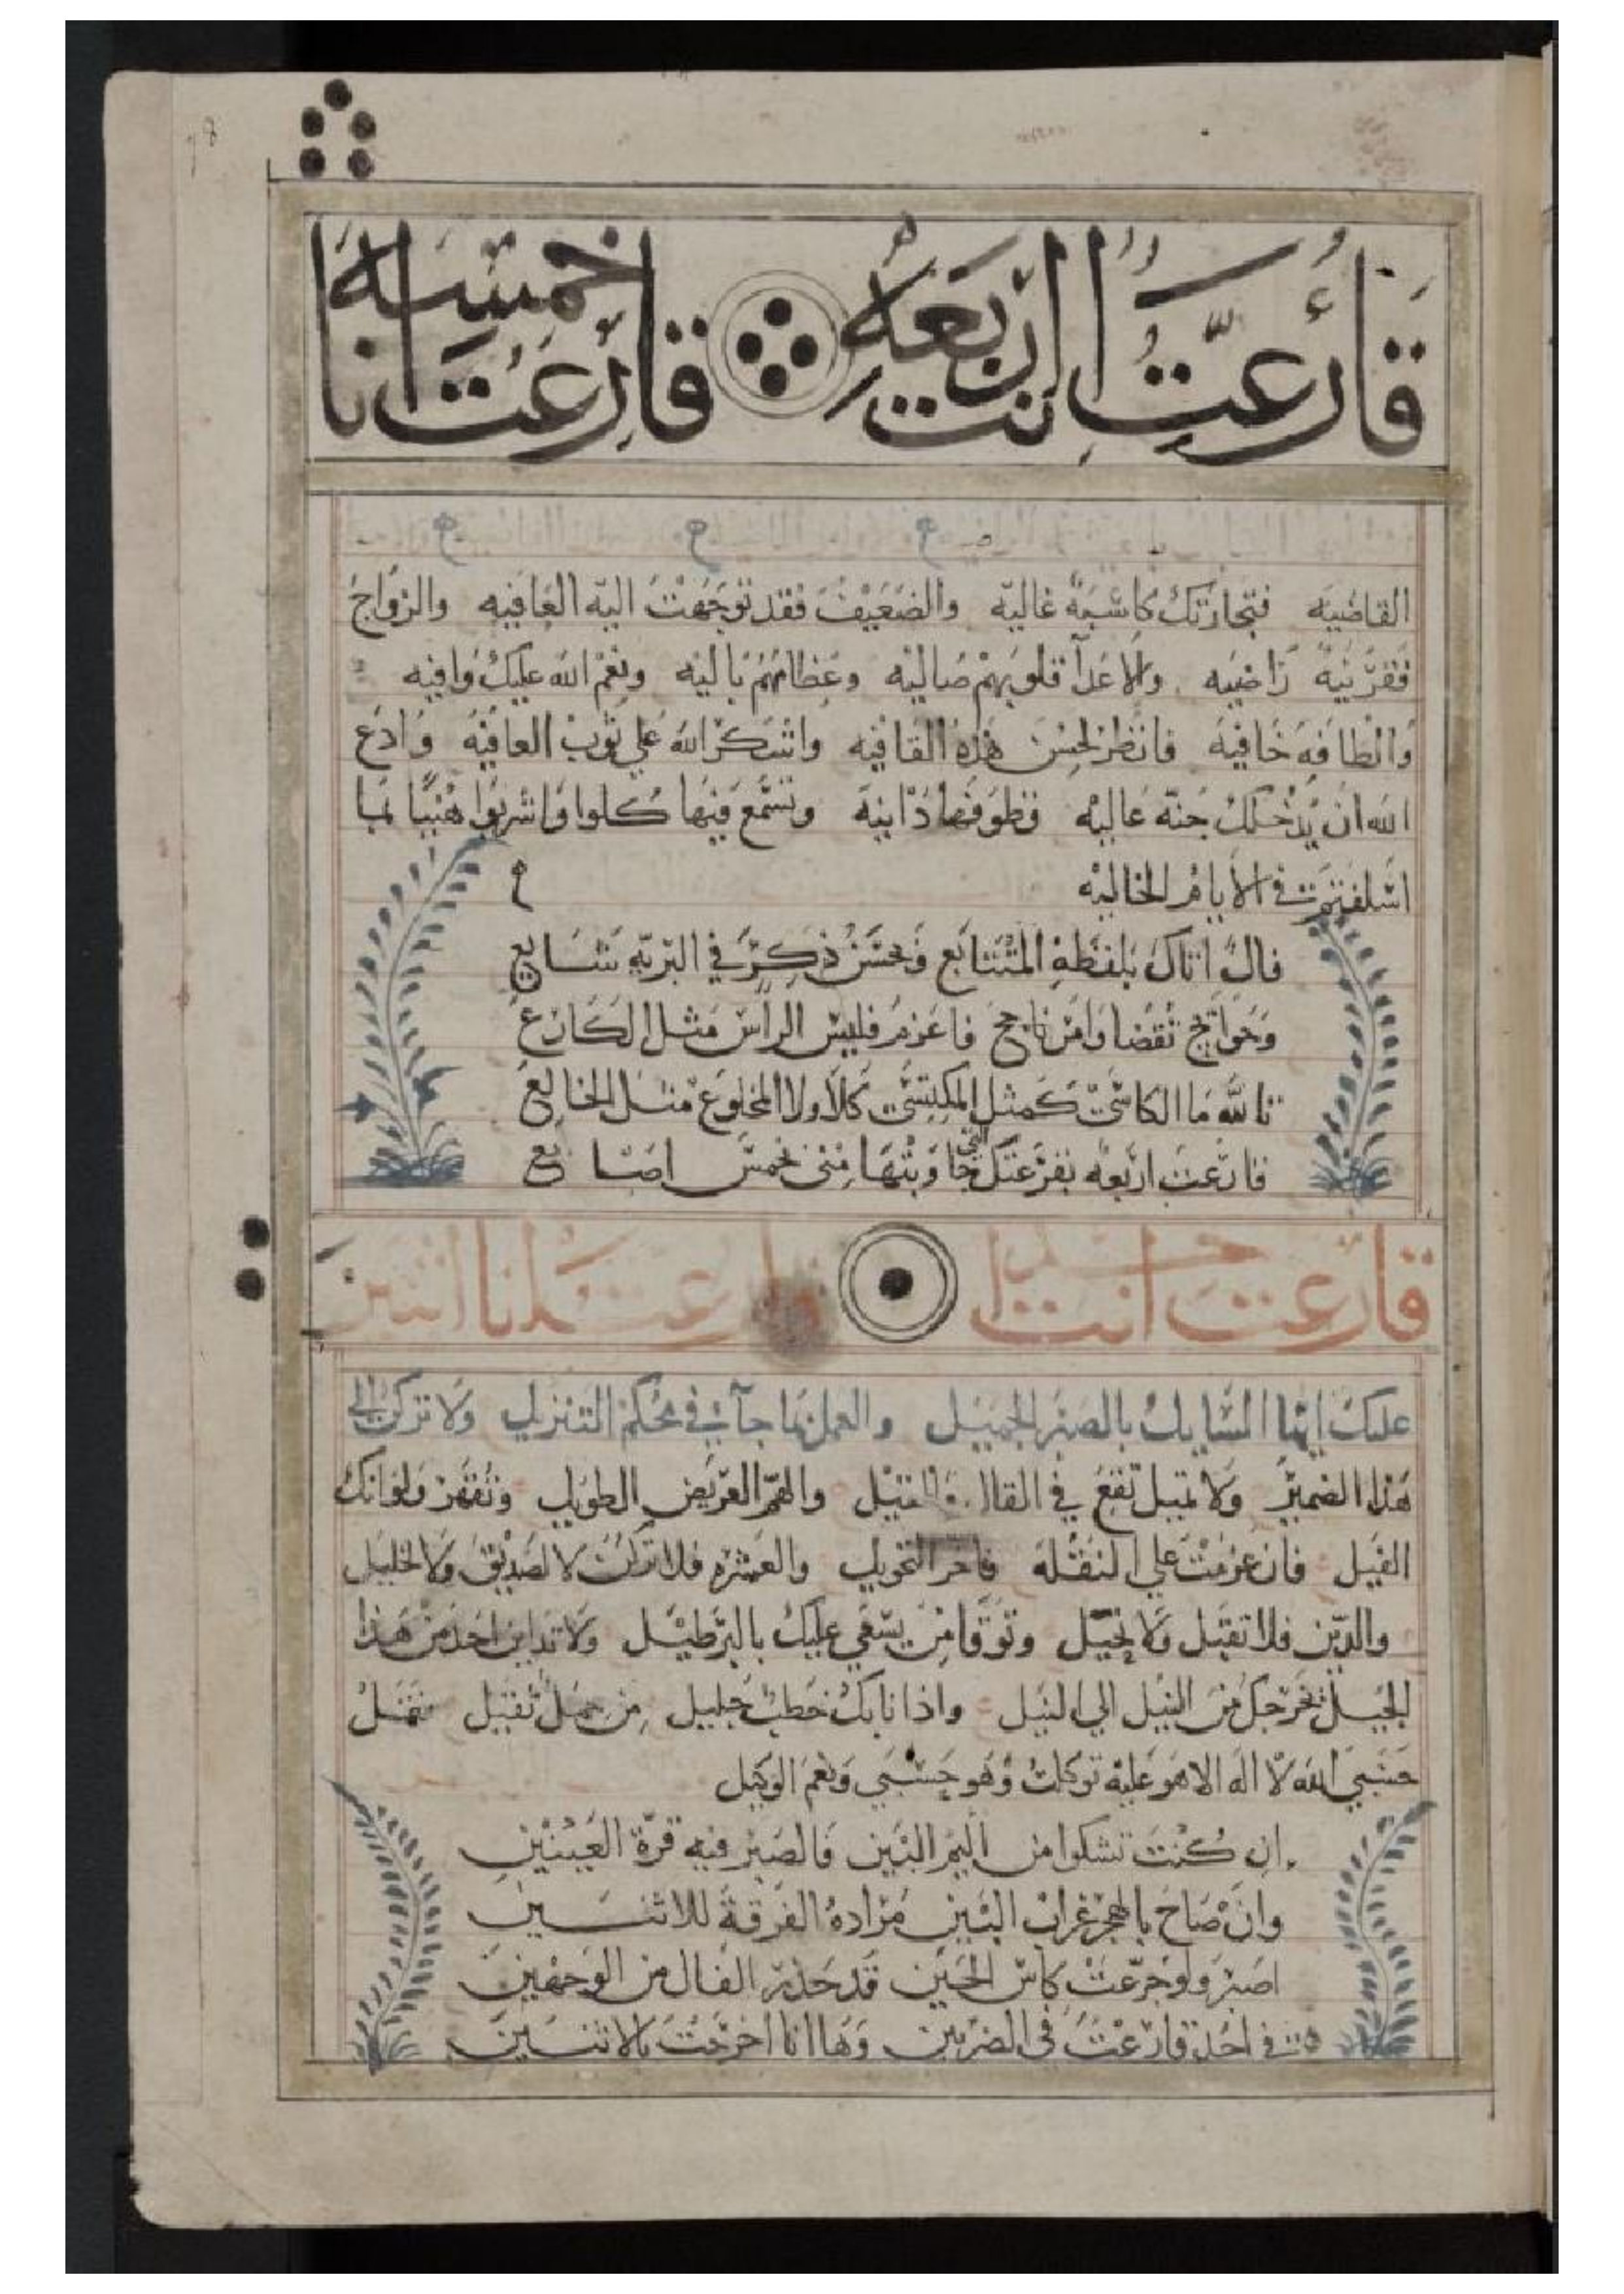 قارعت انت اربعه قارعت انا خمسه
القاضيه فتجارتك كاسبة غاليه والضعيف فقد توجهت اليه العافيه والزواج
فقرينة راضيه والاعدا قلوبهم صاليه وعظامهم باليه ونعم الله عليك وافيه
والطافه خافيه فانظر لحسن هذه القافيه واشكر الله على ثوب العافيه وادع
الله ان يدخلك جنة عاليه قطوفها دانيه وتسمع فيها كلوا واشربوا هنيئا بما
اسلفتم في الايام الخاليه
فال اتاك بلفظه المتتابع وبحسن ذكر في البريه شايع
وحوايج تقضا وامر ناجح فاعزم فليس الراس مثل الكارع
تالله ما الكاسي كمثل المكتسي كلا ولا المخلوع مثل الخالع
قارعت اربعه بقرعتك التي جاوبتها مني بخمس اصابع
قارعت انت احد قارعتك انا اثنين
عليك ايها السايل بالصبر الجميل والعمل بما جآ في محكم التنزيل ولا تركن الى
هذا الضمير ولا تميل تقع في القال والقيل والهم العريض الطويل وتقهر ولو انك
الفيل فان عزمت على النقله فاخر التحويل والعشره فلا تركن لا لصديق ولا لخليل
والدين فلا تقبل ولا تحيل وتوقا من يسعي عليك بالبرطيل ولا تداين احد من هذا
الجيل تخرجك من النيل الى النيل واذا نابك خطب جليل من حمل ثقيل فقل
حسبي الله لا اله الا هو عليه توكلت وهو حسبي ونعم الوكيل
ان كنت تشكوا من اليم البين فالصبر فيه قرة العينين
وان صاح بالهجر غراب البين مراده الفرقة للاثنين
اصبر ولو جرعت كاس الحين قد حذر الفال من الوجهين
في احد قارعت في الضربين وها انا اخرجت بالاثنين